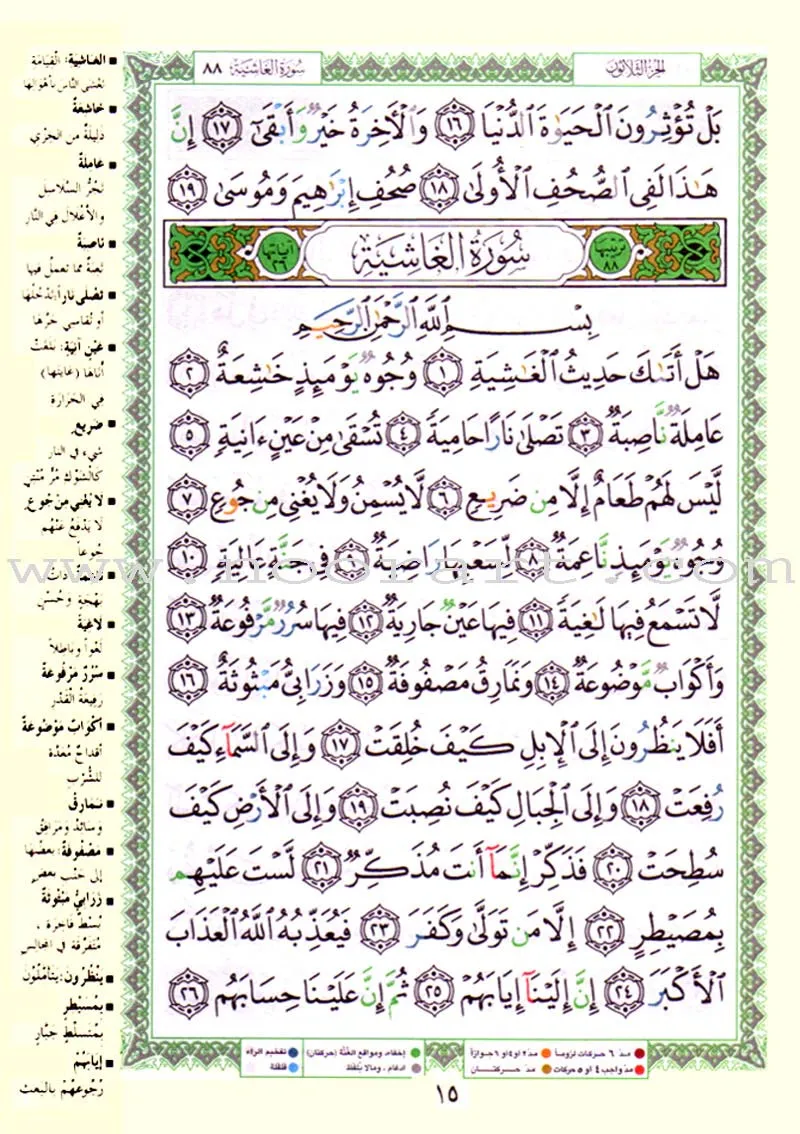 الجزء الثلاثون
سورة الغاشية ٨٨
بَلْ تُؤْثِرُونَ ٱلْحَيَوٰةَ ٱلدُّنْيَا ١٦ وَٱلْأَخِرَةُ خَيْرٌ وَأَبْقَىٰٓ ١٧ إِنَّ
هَـٰذَا لَفِى ٱلصُّحُفِ ٱلْأُولَىٰ ١٨ صُحُفِ إِبْرَٰهِيمَ وَمُوسَىٰ ١٩
ترتيبها ٨٨ سُورَةُ الغَاشِيَةِ آياتها ٢٦
بِسْمِ ٱللَّهِ ٱلرَّحْمَـٰنِ ٱلرَّحِيمِ
هَلْ أَتَىٰكَ حَدِيثُ ٱلْغَـٰشِيَةِ ١ وُجُوهٌ يَوْمَئِذٍ خَـٰشِعَةٌ ٢
عَامِلَةٌ نَّاصِبَةٌ ٣ تَصْلَىٰ نَارًا حَامِيَةً ٤ تُسْقَىٰ مِنْ عَيْنٍ ءَانِيَةٍ ٥
لَّيْسَ لَهُمْ طَعَامٌ إِلَّا مِن ضَرِيعٍ ٦ لَّا يُسْمِنُ وَلَا يُغْنِى مِن جُوعٍ ٧
وُجُوهٌ يَوْمَئِذٍ نَّاعِمَةٌ ٨ لِّسَعْيِهَا رَاضِيَةٌ ٩ فِى جَنَّةٍ عَالِيَةٍ ١٠
لَّا تَسْمَعُ فِيهَا لَـٰغِيَةً ١١ فِيهَا عَيْنٌ جَارِيَةٌ ١٢ فِيهَا سُرُرٌ مَّرْفُوعَةٌ ١٣
وَأَكْوَابٌ مَّوْضُوعَةٌ ١٤ وَنَمَارِقُ مَصْفُوفَةٌ ١٥ وَزَرَابِىُّ مَبْثُوثَةٌ ١٦
أَفَلَا يَنظُرُونَ إِلَى ٱلْإِبِلِ كَيْفَ خُلِقَتْ ١٧ وَإِلَى ٱلسَّمَآءِ كَيْفَ
رُفِعَتْ ١٨ وَإِلَى ٱلْجِبَالِ كَيْفَ نُصِبَتْ ١٩ وَإِلَى ٱلْأَرْضِ كَيْفَ
سُطِحَتْ ٢٠ فَذَكِّرْ إِنَّمَآ أَنتَ مُذَكِّرٌ ٢١ لَّسْتَ عَلَيْهِم
بِمُصَيْطِرٍ ٢٢ إِلَّا مَن تَوَلَّىٰ وَكَفَرَ ٢٣ فَيُعَذِّبُهُ ٱللَّهُ ٱلْعَذَابَ
ٱلْأَكْبَرَ ٢٤ إِنَّ إِلَيْنَآ إِيَابَهُمْ ٢٥ ثُمَّ إِنَّ عَلَيْنَا حِسَابَهُم ٢٦
الغاشية: القيامة
تغشى الناس بأهوالها
خاشعة
ذليلة من الخزي
عاملة
تجر السلاسل
والأغلال في النار
ناصبة
تعبة مما تعمل فيها
تصلى نارا: تدخلها
أو تقاسي حرها
عين آنية: بلغت
أناها (غايتها)
في الحرارة
ضريع
شيء في النار
كالشوك مر منتن
لا يغني من جوع
لا يدفع عنهم
جوعا
ذات
بهجة وحسن
لاغية
لغوا وباطلا
سرر مرفوعة
رفيعة القدر
أكواب موضوعة
أقداح معدة
للشرب
نمارق
وسائد ومرافق
مصفوفة: بعضها
إلى جنب بعض
زرابي مبثوثة
بسط فاخرة،
متفرقة في المجالس
ينظرون: يتأملون
بمسيطر
بمتسلط جبار
إيابهم
رجوعهم بالبعث
مد ٦ حركات لزوماً مد ٢ او ٤ او ٦ جوازاً إخفاء، ومواقع الغنة (حركتان) تفخيم الراء
مد واجب ٤ او ٥ حركات مد حركتان ادغام، ومالا يلفظ قلقلة
١٥
www.noorart.com